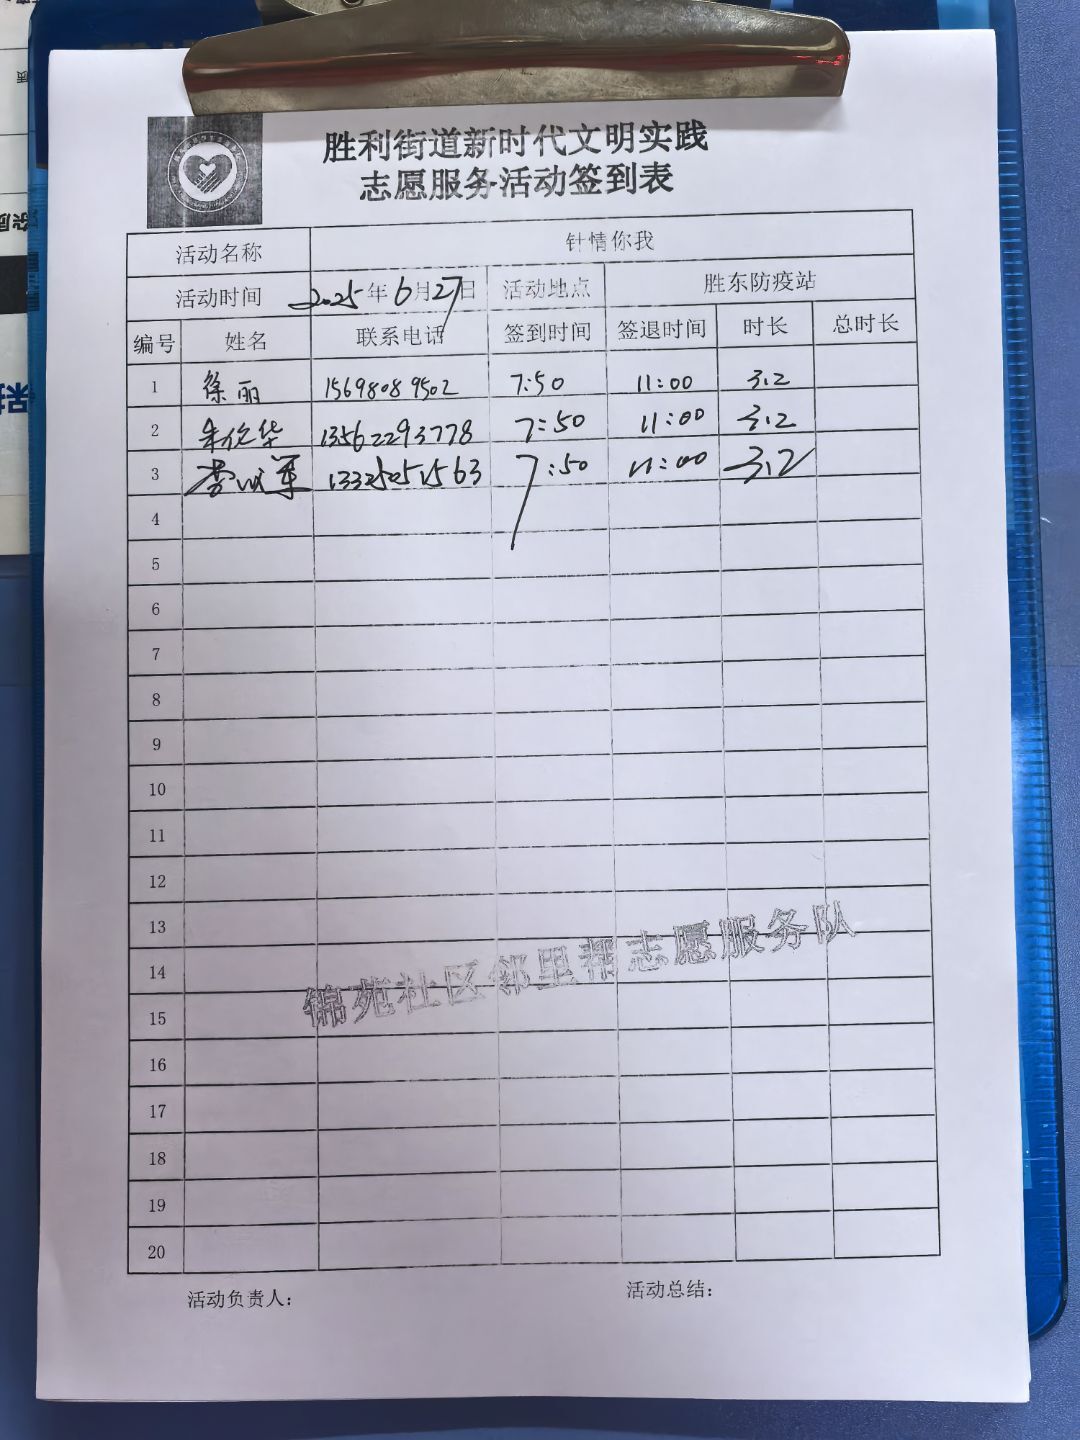 胜利街道新时代文明实践
志愿服务活动签到表
活动名称 针情你我
活动时间 2025年6月27日 活动地点 胜东防疫站
编号 姓名 联系电话 签到时间 签退时间 时长 总时长
1 徐丽 15698089502 7:50 11:00 3.2
2 朱伦华 13562293778 7:50 11:00 3.2
3 李成军 13325251563 7:50 11:00 3.2
4
5
6
7
8
9
10
11
12
13
14
锦苑社区邻里帮志愿服务队
15
16
17
18
19
20
活动负责人： 活动总结：